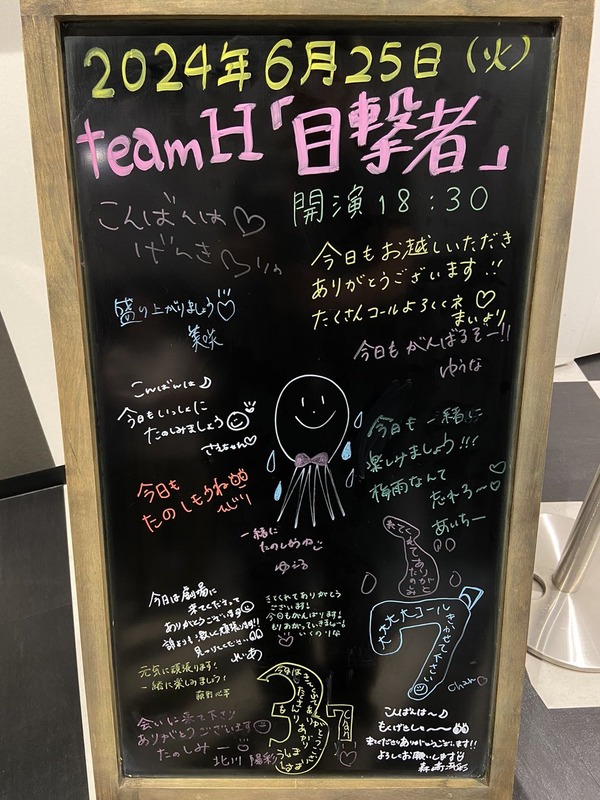 2024年6月25日(火)
teamH「目撃者」
開演18:30
こんばんは♡
げんき♡
今日もお越しいただき
ありがとうございます!!
たくさんコールよろしくネ♡
まいより
盛り上がりましょう♡
美咲
今日もがんばるぞー!!
ゆうな
こんばんは♪
今日もいっしょに
たのしみましょう
さえちゃん♡
今日も一緒に
楽しみましょう!!!
梅雨なんて
忘れろ〜♡
あいちー
今日も
たのしもうね
ひじり
一緒に
たのしもうね
ゆいる
今日は劇場に
来てくださって
ありがとうございます
れいあ
きてくれてありがとう
ございます!
今日もがんばります!
もりあがっていきましょ〜!
いくのりな
大大大コール
きかせて下さい
元気に頑張ります!
一緒に楽しみましょう!
会いに来て下さり
ありがとうございます
たのしみー
北川 陽彩
こんばんは〜♪
もくげきしゃ〜
来てくださりありがとうございます!!
よろしくお願いします